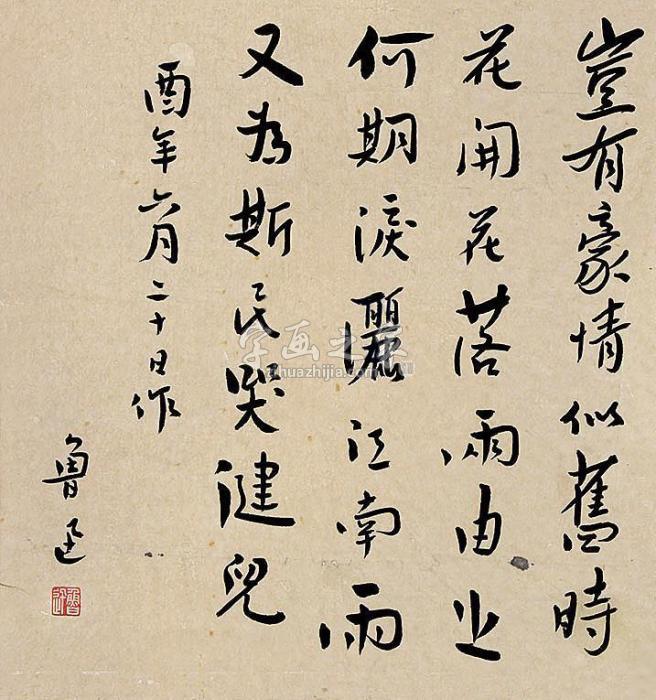 豈有豪情似舊時
花開花落兩由之
何期淚灑江南雨
又為斯民哭健兒
酉年六月二十日作
魯迅
魯迅
字画之家
zihuazhijia.com